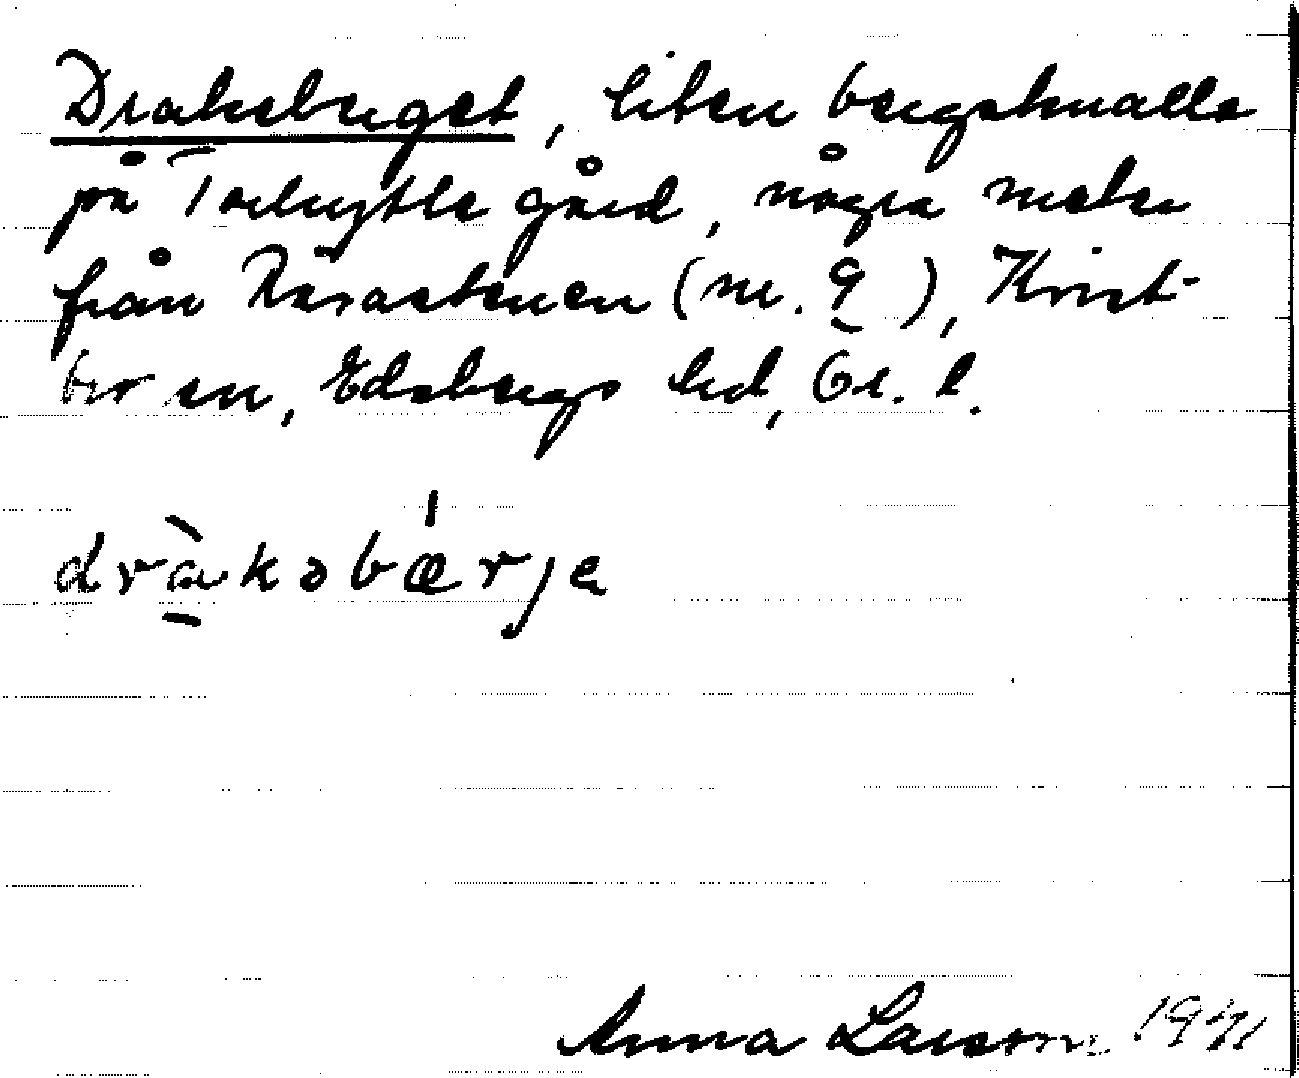 Draksberget, liten bergsknalle
på Torbytte gård, några meter
från Käxastenen (nr. 9), Krist-
ber sn, Edsbergs hd, Ör. l.
dràksbærje
Anna Larson 1941